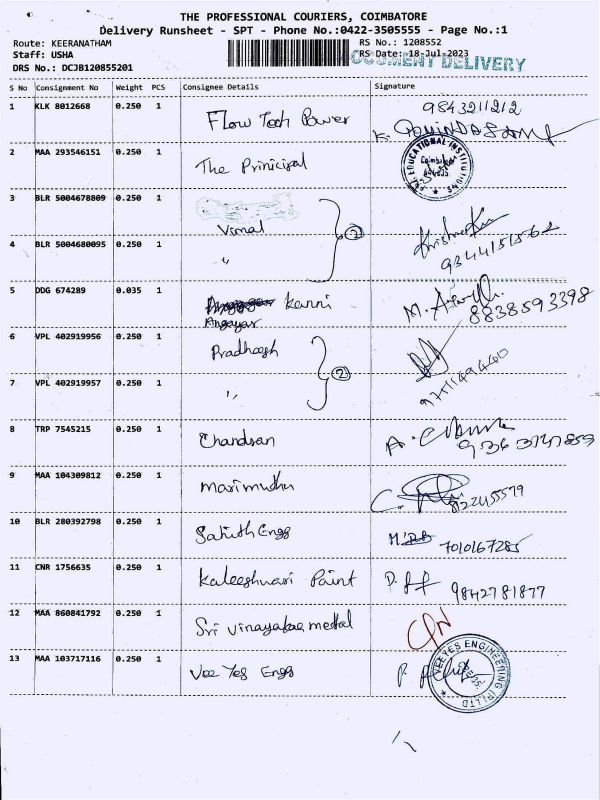 THE PROFESSIONAL COURIERS, COIMBATORE
Delivery Runsheet - SPT - Phone No.:0422-3505555 - Page No.:1
Route: KEERANATHAM
RS No.: 1208552
Staff: USHA
RS Date: 18-Jul-2023
DOCUMENT DELIVERY
DRS No.: DCJB120855201
S No Consignment No Weight PCS Consignee Details Signature
1 KLK 8012668 0.250 1 Flow Tech Power 9843211212
K. GOVINDASAMY
2 MAA 293546151 0.250 1 The Prinicipal
EDUCATIONAL INSTITUTIONS
Coimbatore
3 BLR 5004678809 0.250 1 Vimal
2
4 BLR 5004680095 0.250 1 "
9344151562
5 DDG 674289 0.035 1 Kanni
Angayar
M.
8838593398
6 VPL 402919956 0.250 1 Pradhogh
2
7 VPL 402919957 0.250 1 "
9751149440
8 TRP 7545215 0.250 1 Chandran A.
9 MAA 104309812 0.250 1 marimuthu C.
10 BLR 280392798 0.250 1 Sakthi Engg 7010167285
11 CNR 1756635 0.250 1 Kaleeshwari Paint D. 9842781877
12 MAA 860841792 0.250 1 Sri vinayakaa metal
13 MAA 103717116 0.250 1 Vee Yes Engg P.
VEEYES ENGINEERING (P) LTD